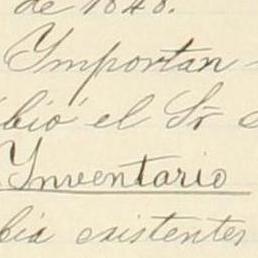 de 1848.
Importan-
bió el Sr
Inventario
bia existentes